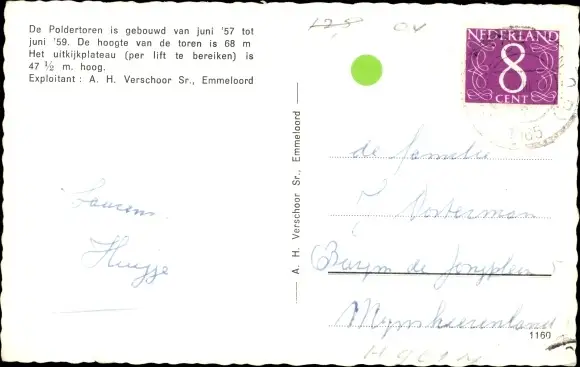 De Poldertoren is gebouwd van juni '57 tot
juni '59. De hoogte van de toren is 68 m
Het uitkijkplateau (per lift te bereiken) is
47 ½ m. hoog.
Exploitant : A. H. Verschoor Sr., Emmeloord
NEDERLAND
8
CENT
A. H. Verschoor Sr., Emmeloord
de familie
Oosterman
Burgm de Jongplein 5
Mijnsheerenland
1160